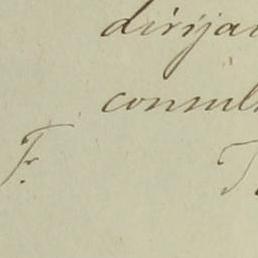 dirija
consul
F.